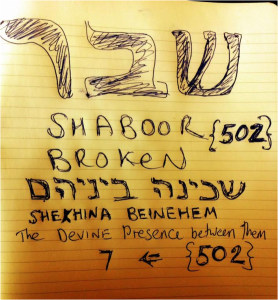 שבר
SHABOOR {502}
BROKEN
שכינה ביניהם
SHEKHINA BEINEHEM
The DEVINE Presence between Them
7 ⇐ {502}